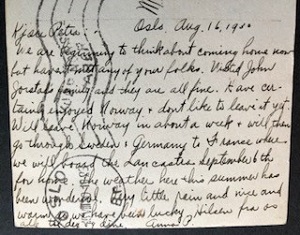 Kjære Petra: - Oslo, Aug. 16, 1950
We are beginning to think about coming home now
but haven't met any of your folks. Visited John
family and they are all fine. Have cer-
tainly enjoyed Norway & don't like to leave it yet.
Will leave Norway in about a week & will then
go through Sweden & Germany to France where
we will board the September 6th
for home. The weather here this summer has
been wonderful. Very little rain and nice and
warm, so we have been lucky. Hilsen fra os
alle til der og dine. Anna